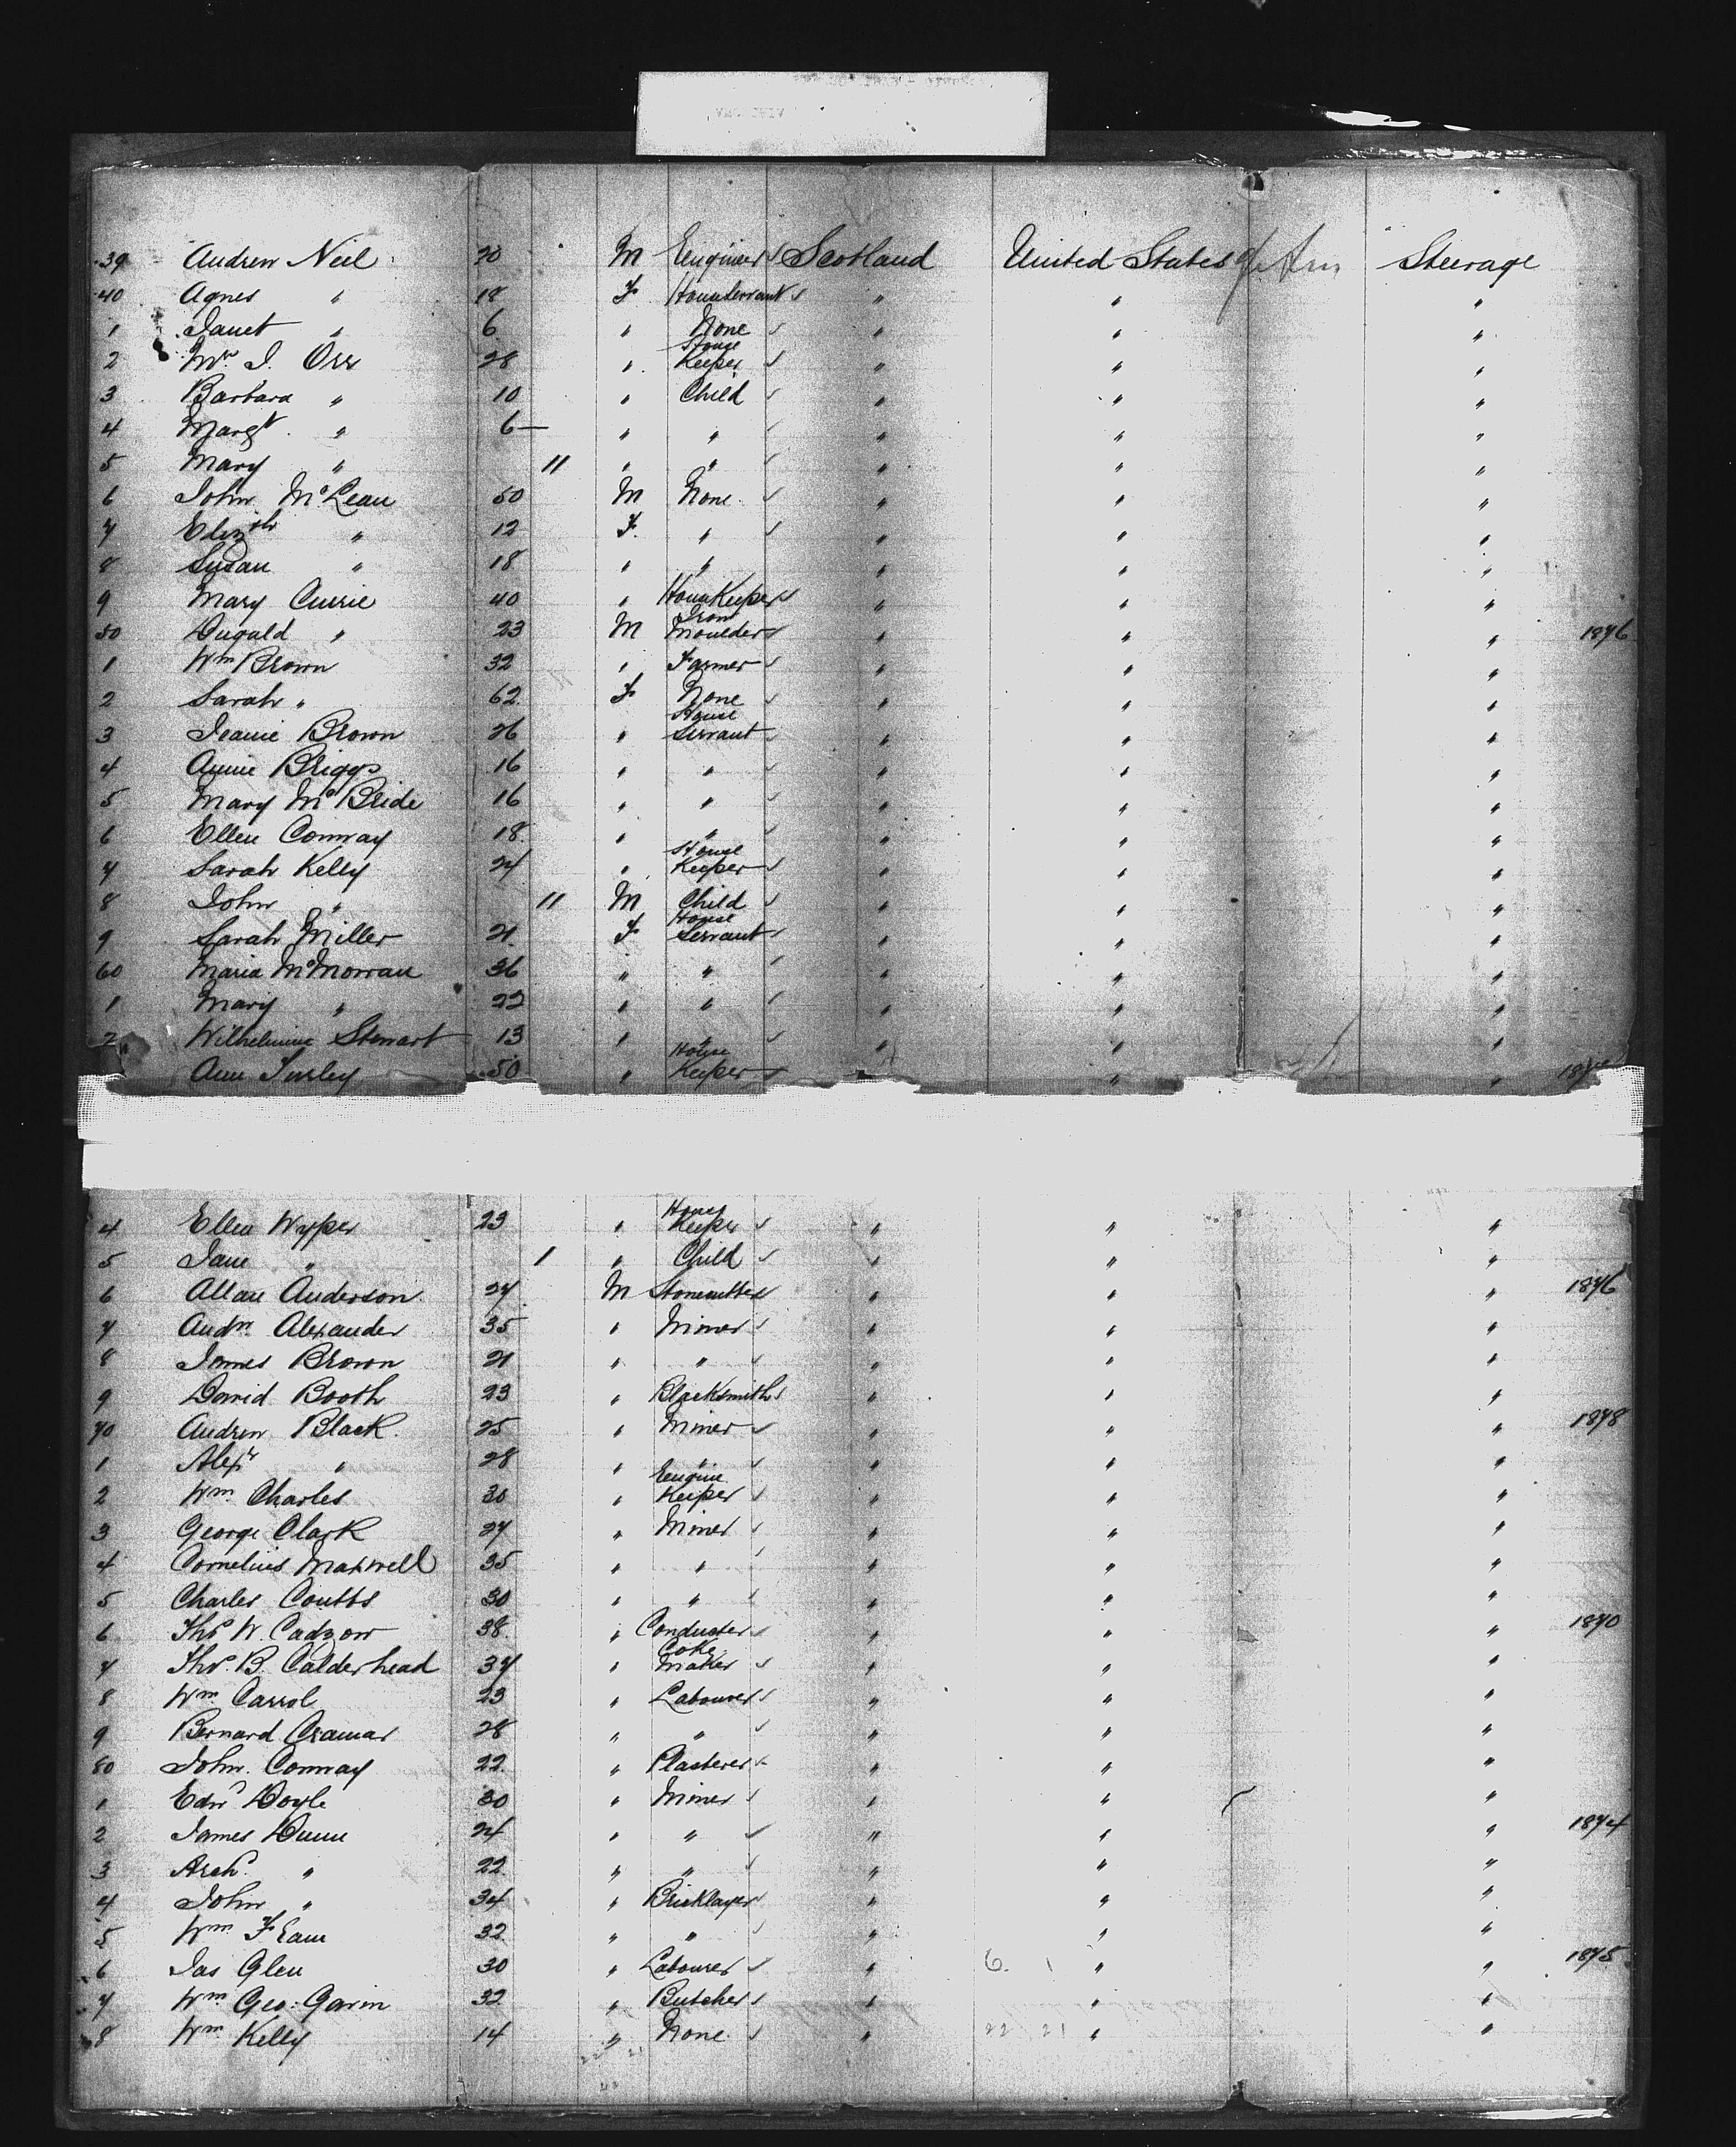 39 Andrew Neil 20 M Engineer Scotland United States of Am Steerage
40 Agnes " 18 F HouseServant " " "
1 Janet " 6 " None " " "
2 Mrs J. Orr 28 " House Keeper " " "
3 Barbara " 10 " Child " " "
4 Margt. " 6 — " " " " "
5 Mary " 11 " " " " "
6 John McLean 50 M None " " "
7 Elizth " 12 F. " " " "
8 Susan " 18 " " " " "
9 Mary Currie 40 " HouseKeeper " " "
50 Dugald " 23 M Iron Moulder " " " 1876
1 Wm Brown 32 " Farmer " " "
2 Sarah " 62 F None " " "
3 Jeanie Brown 26 " House Servant " " "
4 Annie Briggs 16 " " " " "
5 Mary McBride 16 " " " " "
6 Ellen Conway 18 " " " " "
7 Sarah Kelly 24 " House Keeper " " "
8 John " 11 M Child " " "
9 Sarah Miller 21 F House Servant " " "
60 Maria McMorran 36 " " " " "
1 Mary " 22 " " " " "
2 Wilhelmina Stewart 13 " " " " "
Ann 50 " House Keeper " " "
4 Ellen Wyper 23 " House Keeper " " "
5 Jane " 1 " Child " " "
6 Allan Anderson 27 M Stonecutter " " " 1876
7 Andw. Alexander 35 " Miner " " "
8 James Brown 21 " " " " "
9 David Booth 23 " Blacksmith " " "
70 Andrew Black. 25 " Miner " " " 1878
1 Alexr " 28 " " " " "
2 Wm. Charles 30 " Engine Keeper " " "
3 George Clark 27 " Miner " " "
4 Cornelius Maxwell 35 " " " " "
5 Charles Coutts 30 " " " " "
6 Ths W. Cadzow 38 " Conducter " " " 1870
7 Ths. B. Calderhead 37 " Coke Maker " " "
8 Wm. Carrol 23 " Labourer " " "
9 Bernard Cramar 28 " " " " "
80 John Conway 22 " Plasterer " " "
1 Edwd Doyle 30 " Miner " " "
2 James Dunn 24 " " " " " 1874
3 Archd. " 22 " " " " "
4 John " 34 " Bricklayer " " "
5 Wm. 32 " " " " "
6 Jas Glen 30 " Labourer " " " 1875
7 Wm. Geo: Gavin 32 " Butcher " " "
8 Wm Kelly 14 " None " " "